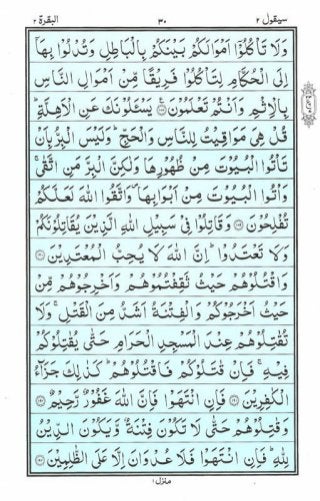 البقرة ٢ ٣٠ سيقول ٢
وَلَا تَاْكُلُوْٓا اَمْوَالَكُمْ بَيْنَكُمْ بِالْبَاطِلِ وَتُدْلُوْا بِهَآ
اِلَى الْحُكَّامِ لِتَاْكُلُوْا فَرِيْقًا مِّنْ اَمْوَالِ النَّاسِ
بِالْاِثْمِ وَاَنْتُمْ تَعْلَمُوْنَ ﴿١٨٨﴾ يَسْـَٔلُوْنَكَ عَنِ الْاَهِلَّةِ ؕ
قُلْ هِيَ مَوَاقِيْتُ لِلنَّاسِ وَالْحَجِّ ؕ وَلَيْسَ الْبِرُّ بِاَنْ
تَاْتُوا الْبُيُوْتَ مِنْ ظُهُوْرِهَا وَلٰكِنَّ الْبِرَّ مَنِ اتَّقٰى ۚ
وَاْتُوا الْبُيُوْتَ مِنْ اَبْوَابِهَا ۪ وَاتَّقُوا اللّٰهَ لَعَلَّكُمْ
تُفْلِحُوْنَ ﴿١٨٩﴾ وَقَاتِلُوْا فِيْ سَبِيْلِ اللّٰهِ الَّذِيْنَ يُقَاتِلُوْنَكُمْ
وَلَا تَعْتَدُوْا ؕ اِنَّ اللّٰهَ لَا يُحِبُّ الْمُعْتَدِيْنَ ﴿١٩٠﴾
وَاقْتُلُوْهُمْ حَيْثُ ثَقِفْتُمُوْهُمْ وَاَخْرِجُوْهُمْ مِّنْ
حَيْثُ اَخْرَجُوْكُمْ وَالْفِتْنَةُ اَشَدُّ مِنَ الْقَتْلِ ۚ وَلَا
تُقٰتِلُوْهُمْ عِنْدَ الْمَسْجِدِ الْحَرَامِ حَتّٰى يُقٰتِلُوْكُمْ
فِيْهِ ۚ فَاِنْ قٰتَلُوْكُمْ فَاقْتُلُوْهُمْ ؕ كَذٰلِكَ جَزَآءُ
الْكٰفِرِيْنَ ﴿١٩١﴾ فَاِنِ انْتَهَوْا فَاِنَّ اللّٰهَ غَفُوْرٌ رَّحِيْمٌ ﴿١٩٢﴾
وَقٰتِلُوْهُمْ حَتّٰى لَا تَكُوْنَ فِتْنَةٌ وَّيَكُوْنَ الدِّيْنُ
لِلّٰهِ ؕ فَاِنِ انْتَهَوْا فَلَا عُدْوَانَ اِلَّا عَلَى الظّٰلِمِيْنَ ﴿١٩٣﴾
منزل ١